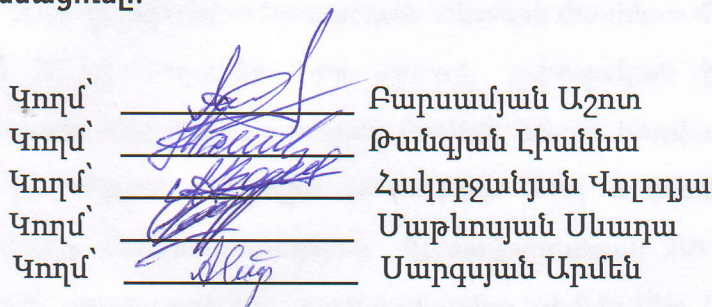 Կողմ՝ Բարսամյան Աշոտ
Կողմ՝ Թանգյան Լիաննա
Կողմ՝ Հակոբջանյան Վոլոդյա
Կողմ՝ Մաթևոսյան Սևադա
Կողմ՝ Սարգսյան Արմեն